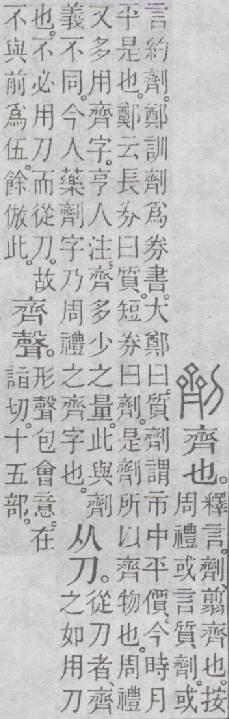 劑 齊也。
釋言。劑、翦齊也。按
周禮或言質劑。或
言約劑。鄭訓劑爲券書。大鄭曰。質劑謂市中平價。今時月
平是也。鄭云長券曰質。短券曰劑。是劑所㠯齊物也。周禮
又多用齊字。亨人注。齊多少之量。此與劑
義不同。今人藥劑字乃周禮之齊字也。
从刀。
從刀者齊
之如用刀
也。不必用刀而從刀。故
不與前爲伍。餘倣此。
齊聲。
形聲包會意。在
詣切。十五部。